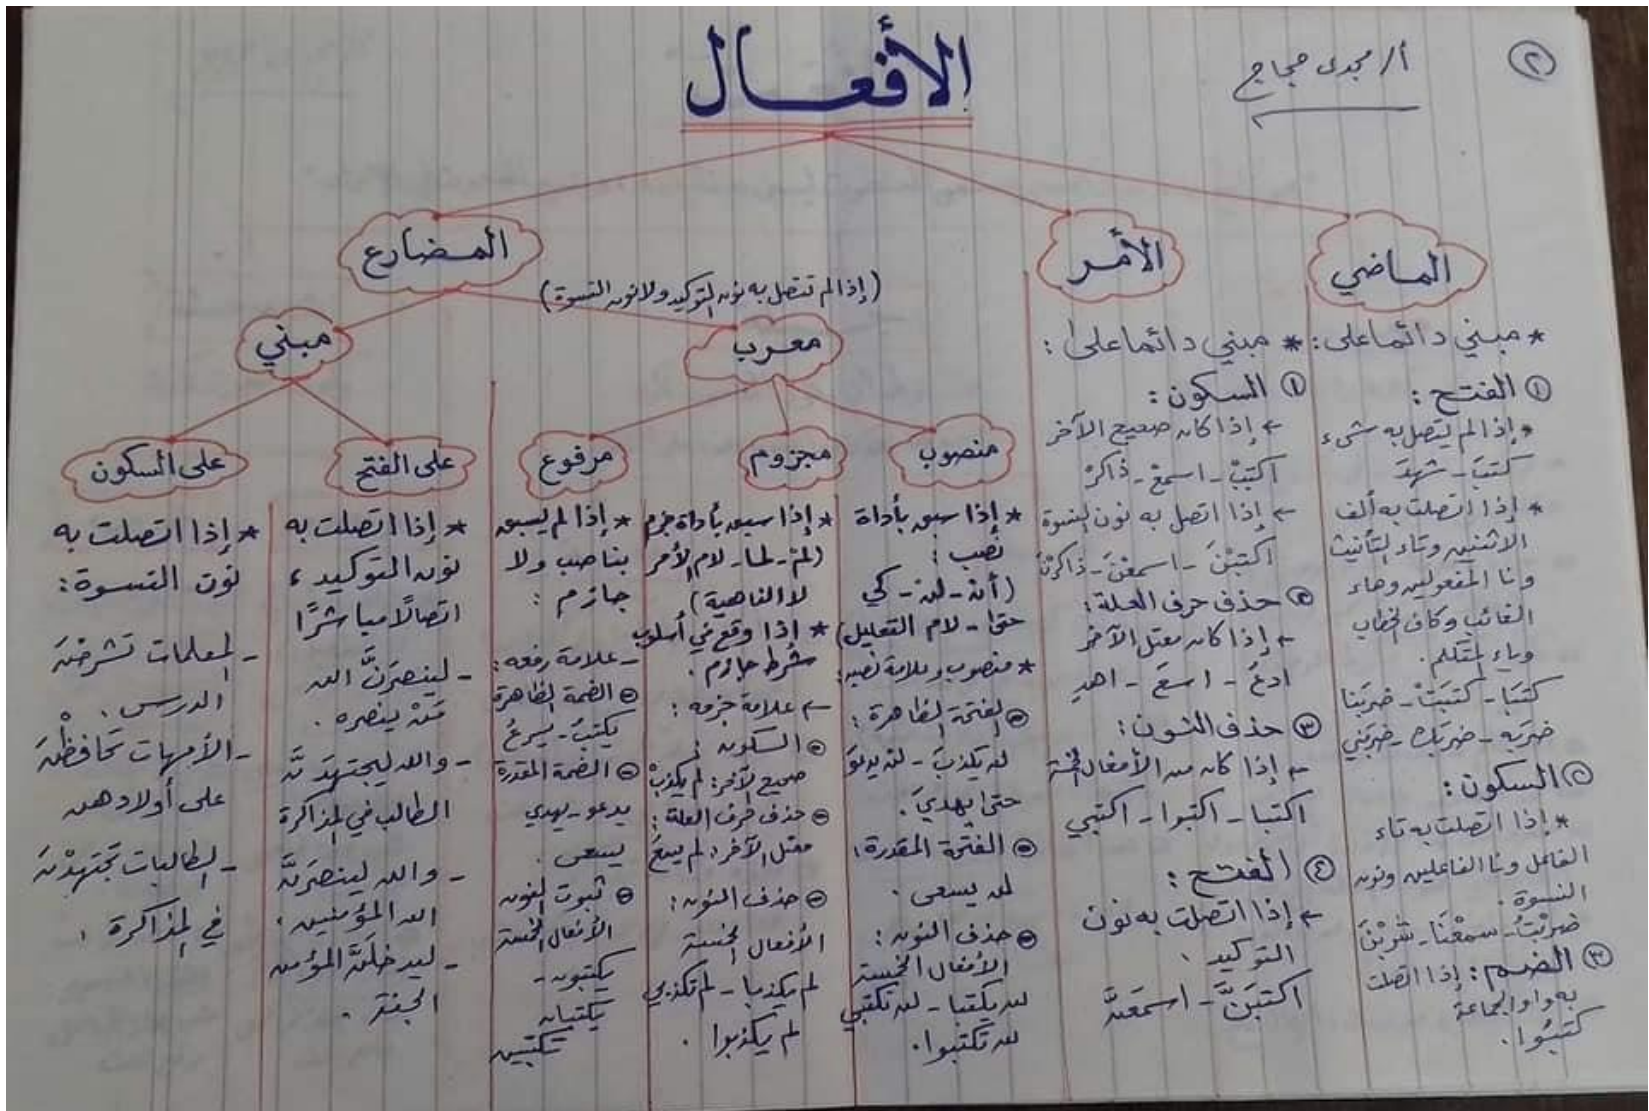 ٢
أ/ مجدى حجاج
الأفعال
الماضي
* مبني دائما على:
١ الفتح:
* إذا لم يتصل به شىء
كتبَ - شهدَ
* إذا اتصلت به ألف
الاثنين وتاء التأنيث
ونا المفعولين وهاء
الغائب وكاف الخطاب
وياء المتكلم.
كتبَا - كتبَتْ - ضربَنا
ضربَه - ضربَك - ضربَني
٢ السكون:
* إذا اتصلت به تاء
الفاعل ونا الفاعلين ونون
النسوة.
ضربْتُ - سمعْنَا - شربْنَ
٣ الضم: إذا اتصلت
به واو الجماعة
كتبُوا.
الأمر
* مبني دائما على:
١ السكون:
← إذا كان صحيح الآخر
اكتبْ - اسمعْ - ذاكرْ
← إذا اتصل به نون النسوة
اكتبْنَ - اسمعْنَ - ذاكرْنَ
٢ حذف حرف العلة:
← إذا كان معتل الآخر
ادعُ - اسعَ - اهدِ
٣ حذف النون:
← إذا كان من الأفعال الخمسة
اكتبا - اكتبوا - اكتبي
٤ الفتح:
← إذا اتصلت به نون
التوكيد.
اكتبَنَّ - اسمعَنَّ
المضارع
(إذا لم تتصل به نون التوكيد ولا نون النسوة)
معرب
منصوب
* إذا سبق بأداة
نصب:
(أن - لن - كي
حتى - لام التعليل)
* منصوب وعلامة نصبه:
الفتحة الظاهرة:
لن يكذبَ - لن يدعوَ
حتى يهديَ.
الفتحة المقدرة:
لن يسعى.
حذف النون:
الأفعال الخمسة
لن يكتبا - لن تكتبي
لن تكتبوا.
مجزوم
* إذا سبق بأداة جزم
(لم - لما - لام الأمر
لا الناهية)
* إذا وقع في أسلوب
شرط جازم.
← علامة جزمه:
السكون:
صحيح الآخر: لم يكذبْ
حذف حرف العلة:
معتل الآخر: لم يسعَ
حذف النون:
الأفعال الخمسة
لم يكذبا - لم تكذبي
لم يكذبوا.
مرفوع
* إذا لم يسبق
بناصب ولا
جازم:
- علامة رفعه:
الضمة الظاهرة
يكتبُ - يسرعُ
الضمة المقدرة
يدعو - يهدي
يسعى.
ثبوت النون
الأفعال الخمسة
يكتبون -
يكتبان
تكتبين
مبني
على الفتح
* إذا اتصلت به
نون التوكيد،
اتصالًا مباشرًا
- لينصرَنَّ الله
مَنْ ينصره.
- والله ليجتهدَنَّ
الطالب في المذاكرة
- والله لينصرَنَّ
الله المؤمنين.
- ليدخلَنَّ المؤمن
الجنة.
على السكون
* إذا اتصلت به
نون النسوة:
- المعلمات تشرحْنَ
الدرس.
- الأمهات تحافظْنَ
على أولادهن
- الطالبات تجتهدْنَ
في المذاكرة.